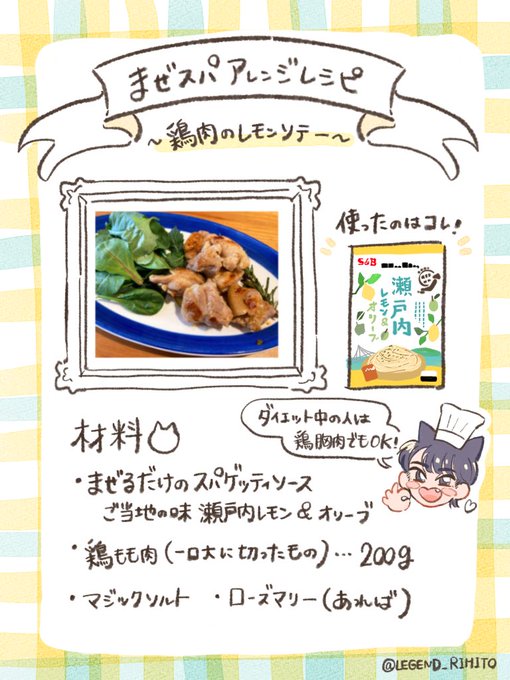 まぜスパ アレンジレシピ
～鶏肉のレモンソテー～
使ったのはコレ!
S&B
瀬戸内
レモン&
オリーブ
ダイエット中の人は
鶏胸肉でもOK!
材料
・まぜるだけのスパゲッティソース
ご当地の味 瀬戸内レモン & オリーブ
・鶏もも肉(一口大に切ったもの)…200g
・マジックソルト ・ローズマリー(あれば)
@LEGEND_RIHITO